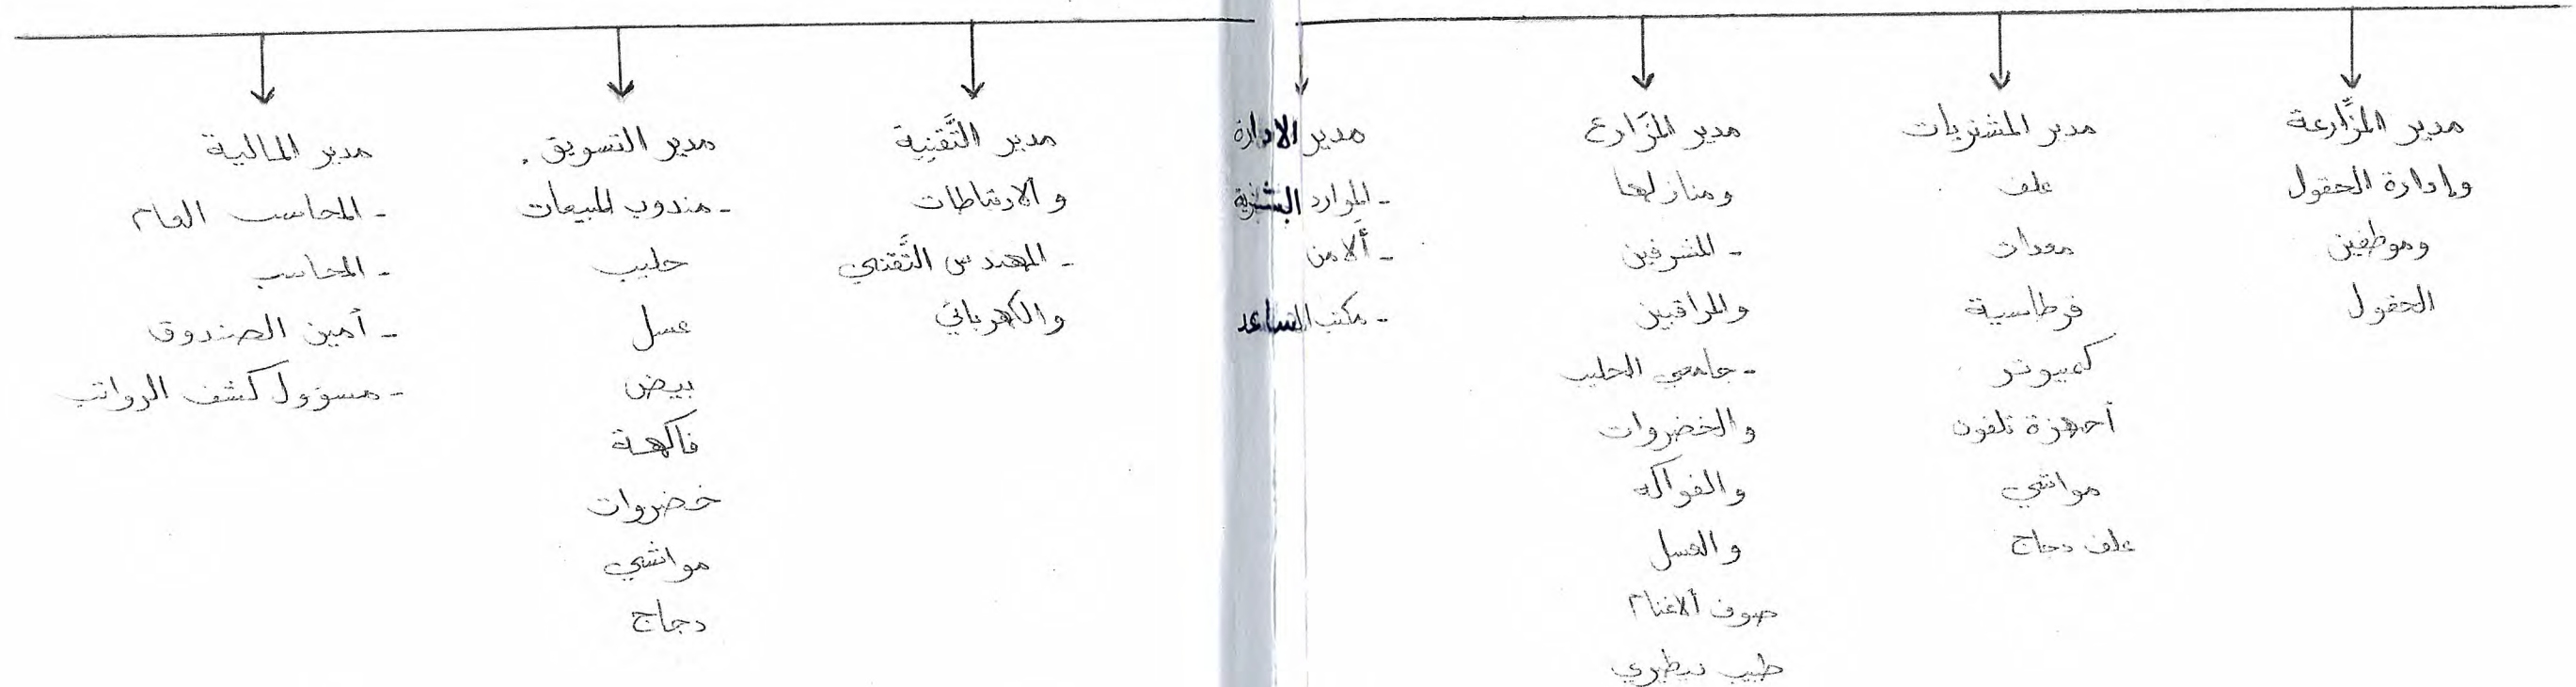 مدير المزَّارعة
وإدارة الحقول
وموظفين
الحقول
مدير المشتريات
علف
معدات
قرطاسية
كمبيوتر
أجهزة تلفون
مواشي
علف دجاج
مدير المزَارع
ومنازلها
- المشرفين
والمراقبين
- جامعي الحليب
والخضروات
والفواكه
والعسل
صوف ألاغنام
طبيب بيطري
مدير الادارة
- الموارد البشرية
- ألامن
- مكتب المساعد
مدير التَّقنية
والارتباطات
- المهندس التَّقني
والكهربائي
مدير التسويق.
- مندوب المبيعات
حليب
عسل
بيض
فاكهة
خضروات
مواشي
دجاج
مدير المالية
- المحاسب العام
- المحاسب
- أمين الصندوق
- مسؤول كشف الرواتب